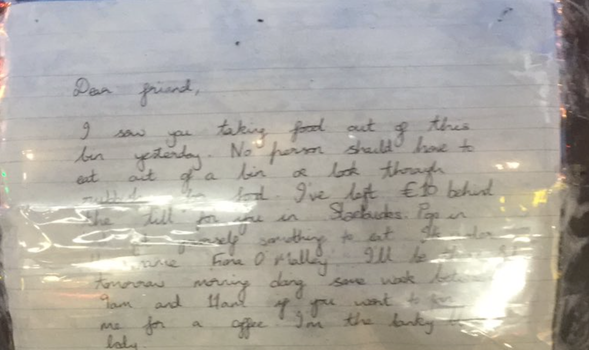 Dear friend,
I saw you taking food out of this
bin yesterday. No person should have to
eat out of a bin or look through
for food. I've left €10 behind
the till for you in Starbucks. Pop in
yourself something to eat. It's under
name Fiona O'Malley. I'll be
tomorrow morning doing some work between
9am and 11am if you want to join
me for a coffee. I'm the lanky
lady.